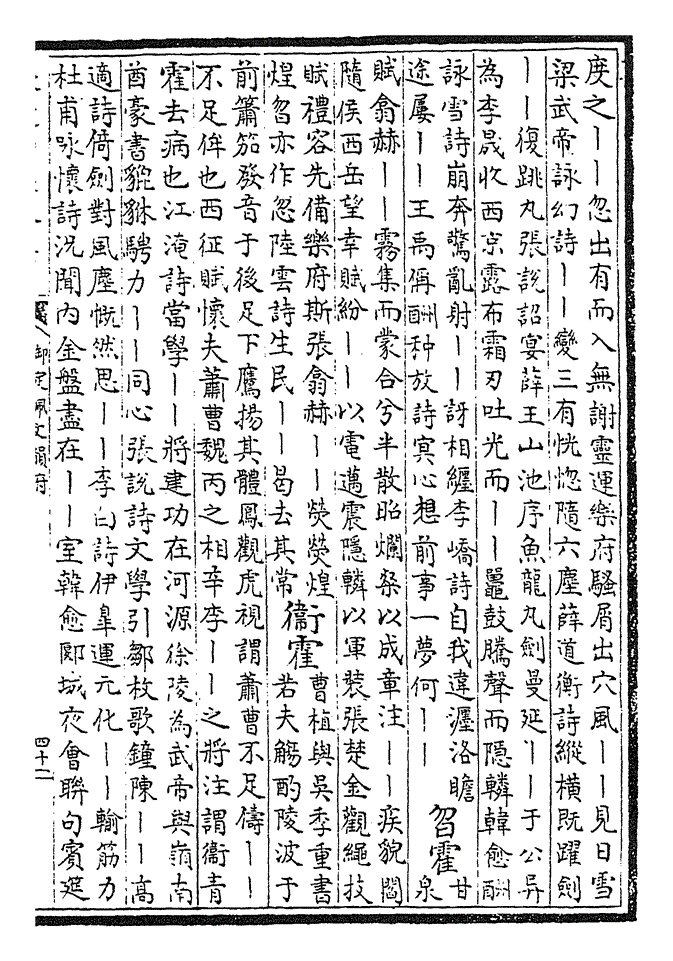 度之丨丨忽出有而入無謝靈運樂府騷屑出穴風丨丨見日雪
梁武帝詠幻詩丨丨變三有恍惚隨六塵薛道衡詩縱橫既躍劍
丨丨復跳丸張說詔宴薛王山池序魚龍丸劍曼延丨丨于公异
為李晟收西京露布霜刃吐光而丨丨鼉鼓騰聲而隱轔韓愈酬
詠雪詩崩奔驚亂射丨丨訝相纏李嶠詩自我違瀍洛瞻
途屢丨丨王禹偁酬种放詩冥心想前事一夢何丨丨
曶霍
甘
泉
賦翕赫丨丨霧集而蒙合兮半散昭爛粲以成章注丨丨疾貌閻
隨侯西岳望幸賦紛丨丨以電邁震隱轔以軍裝張楚金觀繩技
賦禮容先備樂府斯張翕赫丨丨熒熒煌
煌曶亦作忽陸雲詩生民丨丨曷去其常
衞霍
曹植與吳季重書
若夫觴酌陵波于
前簫笳發音于後足下鷹揚其體鳳觀虎視謂蕭曹不足儔丨丨
不足侔也西征賦懷夫蕭曹魏丙之相辛李丨丨之將注謂衞青
霍去病也江淹詩當學丨丨將建功在河源徐陵為武帝與嶺南
酋豪書貔貅騁力丨丨同心張說詩文學引鄒枚歌鐘陳丨丨高
適詩倚劍對風塵慨然思丨丨李白詩伊臯運元化丨丨輸筋力
杜甫咏懷詩況聞內金盤盡在丨丨室韓愈郾城夜會聯句賓筵
御定佩文韻府
四十二